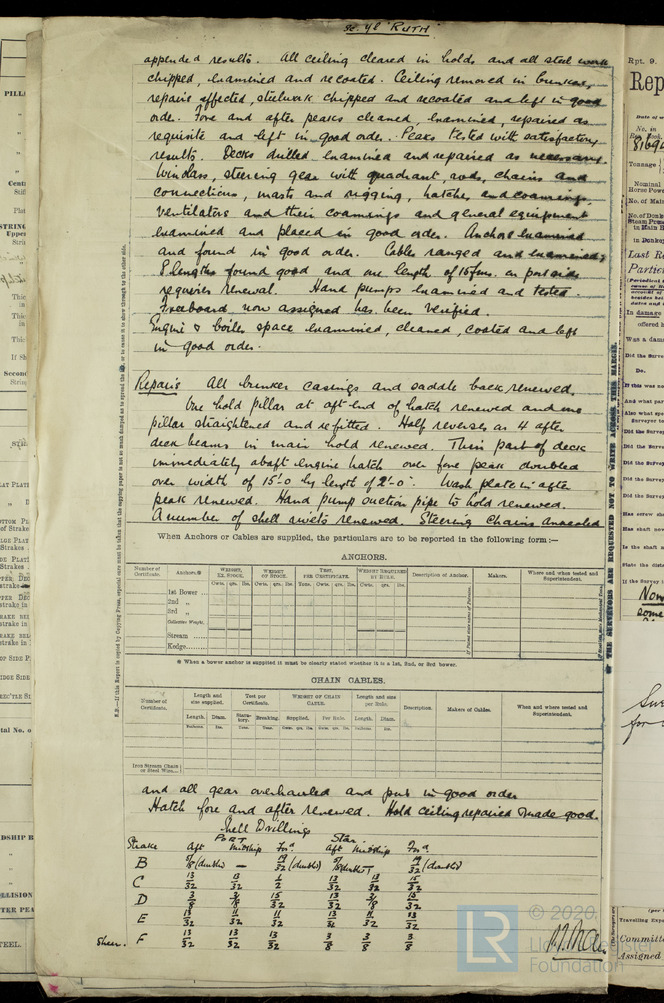 "RUTH"
appended results. All ceiling cleared in holds and all steel work
chipped, examined and recoated. Ceiling removed in bunker,
repairs effected, steelwork chipped and recoated and left in good
order. Fore and after peaks cleaned, examined, repaired as
requisite and left in good order. Peaks tested with satisfactory
results. Decks drilled examined and repaired as necessary.
Windlass, steering gear with quadrant, rods, chains and
connections, masts and rigging, hatches and coamings,
ventilators and their coamings and general equipment
examined and placed in good order. Anchors examined
and found in good order. Cables ranged and examined;
8 lengths found good and one length of 15 fms. on port side
requires renewal. Hand pumps examined and tested.
Freeboard now assigned has been verified.
Engine & boiler space examined, cleaned, coated and left
in good order.
Repairs All bunker casings and saddle back renewed.
One hold pillar at aft end of hatch renewed and one
pillar straightened and refitted. Half reverses on 4 after
deck beams in main hold renewed. Thin part of deck
immediately abaft engine hatch over fore peak doubled
over width of 15'.0 by length of 2'.0". Wash plate in after
peak renewed. Hand pump suction pipe to hold renewed.
A number of shell rivets renewed. Steering chains annealed
When Anchors or Cables are supplied, the particulars are to be reported in the following form:—
ANCHORS.
Number of Certificate. Anchors.* WEIGHT, EX. STOCK. WEIGHT OF STOCK. TEST, PER CERTIFICATE. WEIGHT REQUIRED BY RULE. Description of Anchor. Makers. Where and when tested and Superintendent.
Cwts. qrs. lbs. Cwts. qrs. lbs. Tons. Cwts. qrs. lbs. Cwts. qrs. lbs.
1st Bower
2nd "
3rd "
Collective Weight.
Stream
Kedge
* When a bower anchor is supplied it must be clearly stated whether it is a 1st, 2nd, or 3rd bower.
CHAIN CABLES.
Number of Certificate. Length and size supplied. Test per Certificate. WEIGHT OF CHAIN CABLE. Length and size per Rule. Description. Makers of Cables. When and where tested and Superintendent.
Length. Diam. Statutory. Breaking. Supplied. Per Rule. Length. Diam.
Iron Stream Chain or Steel Wire
and all gear overhauled and put in good order
Hatch fore and after renewed. Hold ceiling repaired & made good.
Shell Drillings
PORT Star.
Strake Aft Midship For'd Aft Midship For'd
B 5/8 (double) — 19/32 (double) 5/8 (double) 19/32 (double)
C 13/32 13/32 1/2 13/32 13/32 15/32
D 3/8 3/8 15/32 13/32 3/8 13/32
E 13/32 11/32 11/32 13/32 11/32 13/32
Sheer. F 13/32 13/32 13/32 3/8 3/8 3/8
LR
© 2020,
Lloyd's Register
Foundation
THE SURVEYORS ARE REQUESTED NOT TO WRITE ACROSS THIS MARGIN.
Rpt. 9.